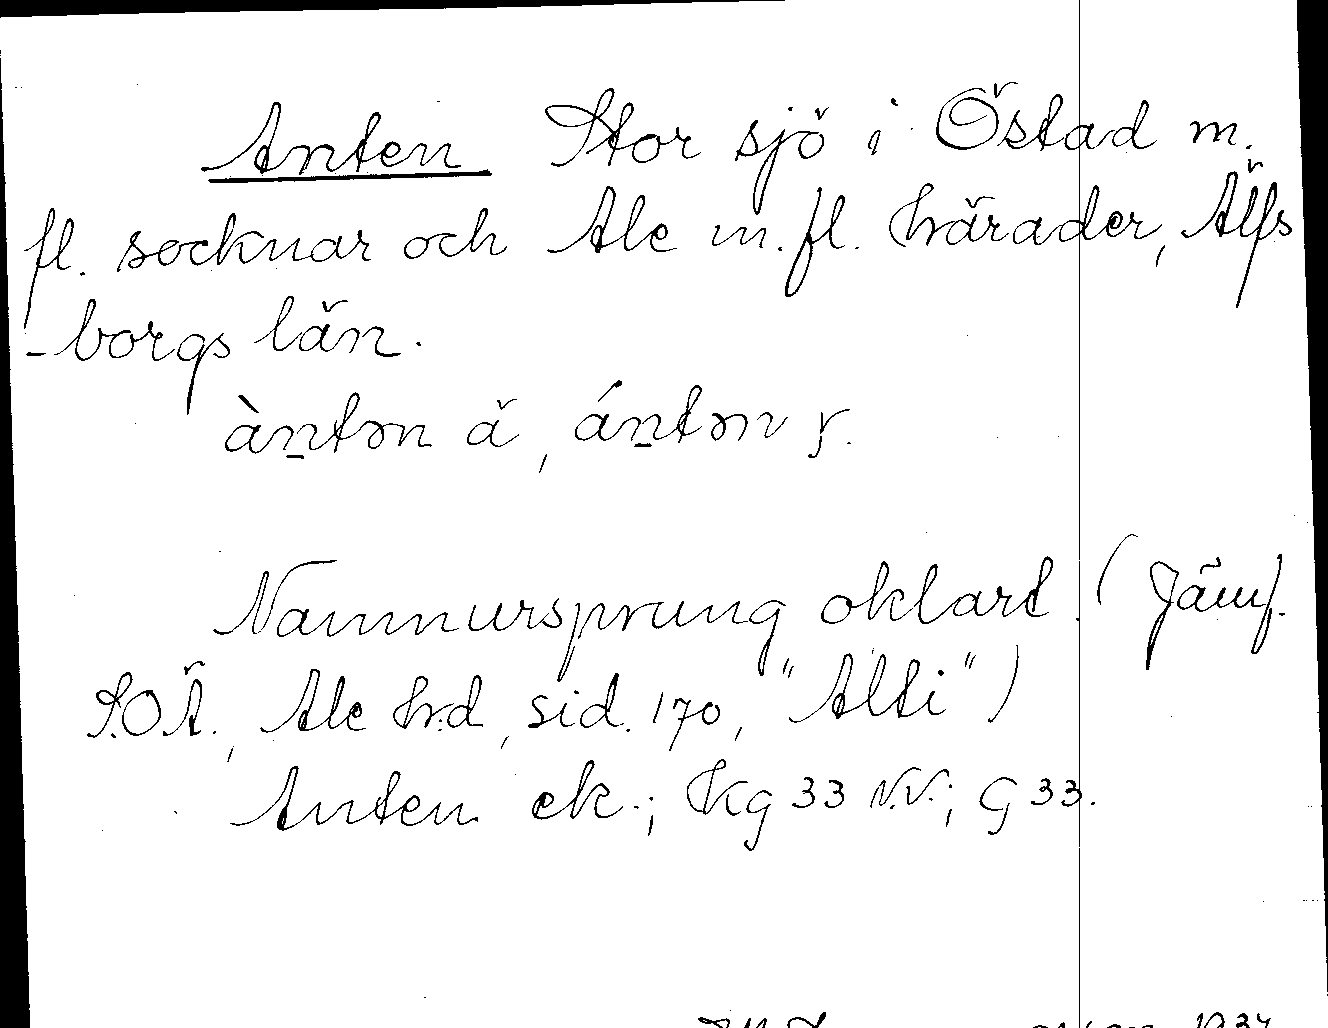 Anten Stor sjö i Östad m.
fl. socknar och Ale m.fl. härader, Älfs
-borgs län.
àntən ä, ántən y.
Namnursprung oklart. (Jämf.
S.O.Ä., Ale hrd, sid. 170, "Alti")
Anten ek.; Kg 33 N.V.; G 33.